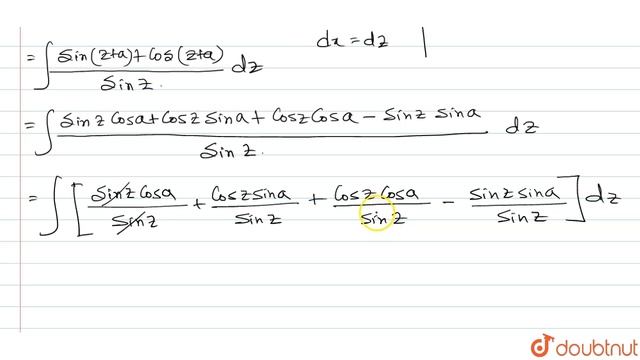 = ∫ Sin(z+a)+Cos(z+a) / Sin z. dz    dx = dz |
= ∫ Sin z Cos a + Cos z Sin a + Cos z Cos a − Sin z Sin a / Sin z. dz
= ∫ [ Sin z Cos a / Sin z + Cos z Sin a / Sin z + Cos z Cos a / Sin z − Sin z Sin a / Sin z ] dz
doubtnut